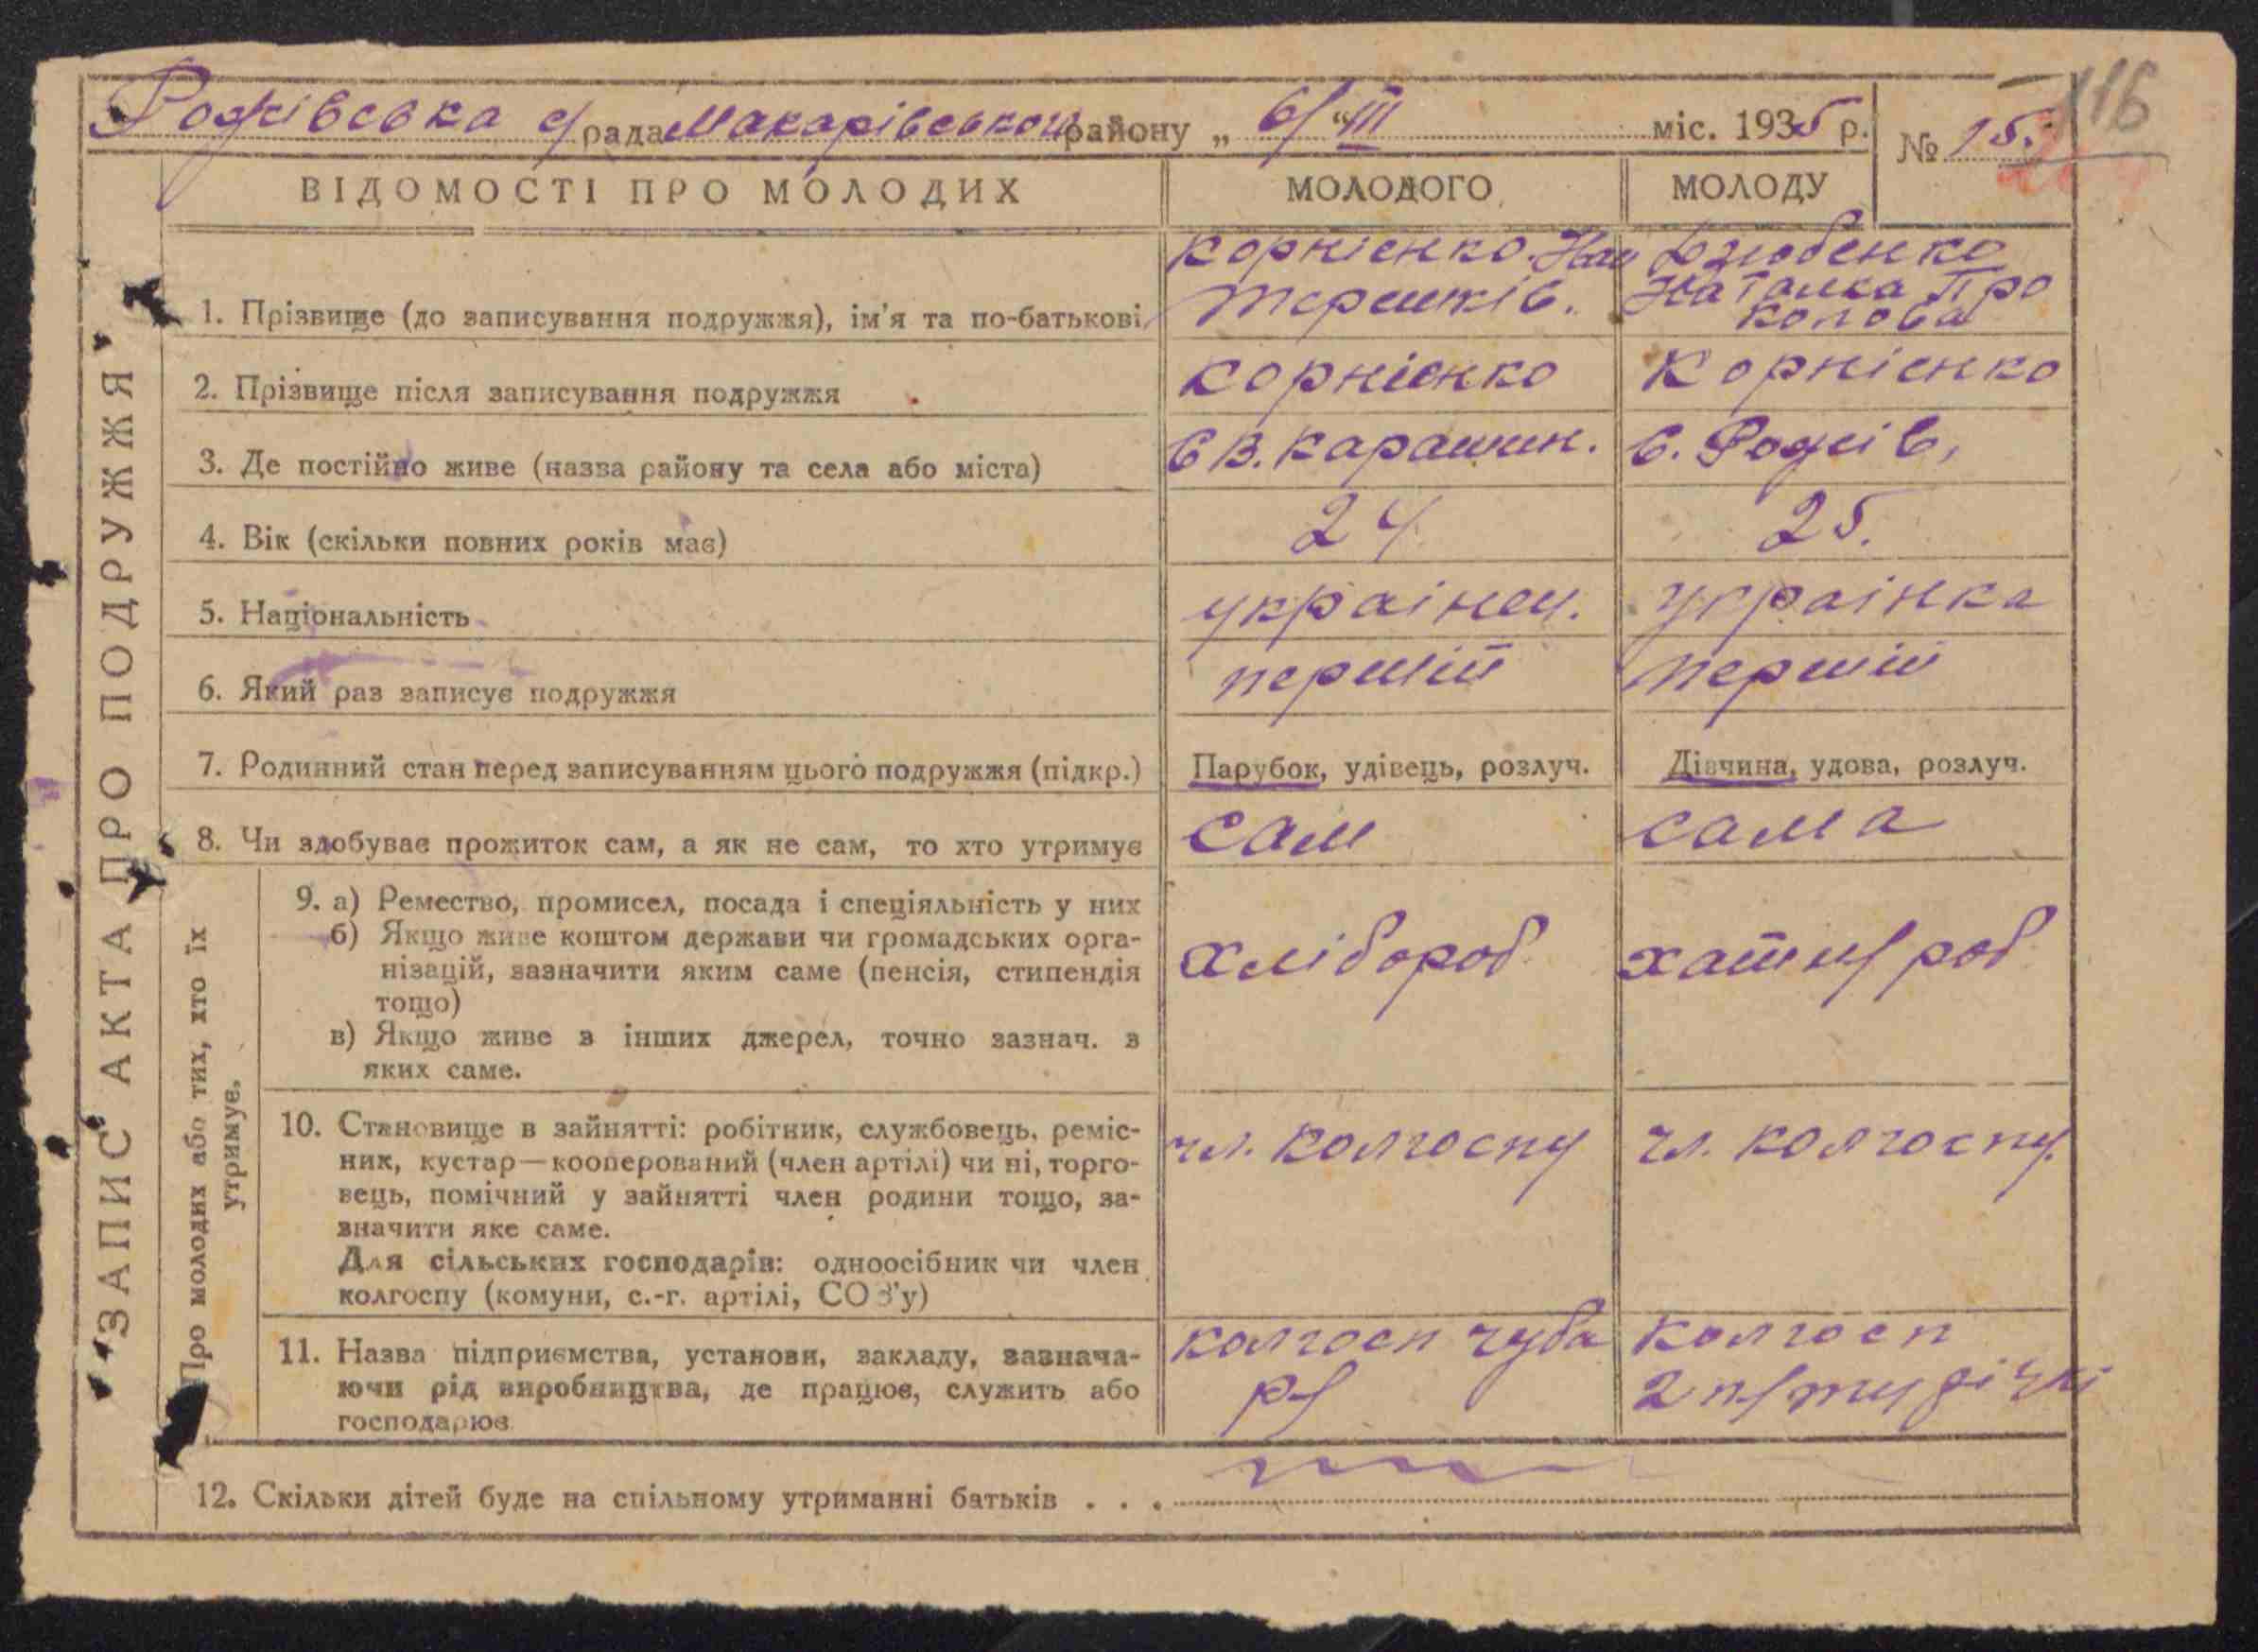 Рожівська с/рада Макарівського району „ 6/"III міс. 1935 р.
№ 15.
116
ЗАПИС АКТА ПРО ПОДРУЖЖЯ
ВІДОМОСТІ ПРО МОЛОДИХ МОЛОДОГО МОЛОДУ
1. Прізвище (до записування подружжя), ім'я та по-батькові
Корнієнко
Дзюбенко
Наталка Про
копова
2. Прізвище після записування подружжя Корнієнко Корнієнко
3. Де постійно живе (назва району та села або міста) с В. Карашин. с. Рожів,
4. Вік (скільки повних років має) 24 25.
5. Національність українец. українка
6. Який раз записує подружжя перший перший
7. Родинний стан перед записуванням цього подружжя (підкр.) Парубок, удівець, розлуч. Дівчина, удова, розлуч.
8. Чи здобуває прожиток сам, а як не сам, то хто утримує сам сама
Про молодих або тих, хто їх
утримує.
9. а) Ремество, промисел, посада і спеціяльність у них
б) Якщо живе коштом держави чи громадських орга-
нізацій, зазначити яким саме (пенсія, стипендія
тощо)
в) Якщо живе з інших джерел, точно зазнач. з
яких саме.
хлібороб хатн/роб
10. Становище в зайнятті: робітник, службовець, реміс-
ник, кустар—кооперований (член артілі) чи ні, торго-
вець, помічний у зайнятті член родини тощо, за-
значити яке саме.
Для сільських господарів: одноосібник чи член
колгоспу (комуни, с.-г. артілі, СОЗ'у)
чл. колгоспу чл. колгоспу.
11. Назва підприємства, установи, закладу, зазнача-
ючи рід виробництва, де працює, служить або
господарює
колгосп Чуба
ря
колгосп
2 п/ти
12. Скільки дітей буде на спільному утриманні батьків . . .